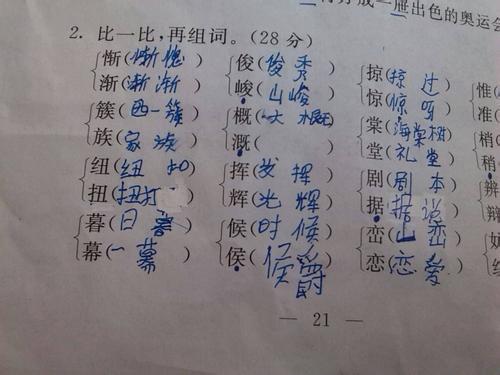 成一
出色的奥运会
2. 比一比,再组词。(28 分)
惭(惭愧) 俊(俊秀) 掠(掠过) 惟(
渐(渐渐) 峻(山峻) 惊(惊呀) 准(
簇(西一簇) 概(大概) 棠(海棠树) 梢(
族(家族) 溉( ) 堂(礼堂) 稍(
纽(纽扣) 挥(发挥) 剧(剧本) 辨
扭(扭打) 辉(光辉) 据(据说) 辩
暮(日暮) 候(时候) 峦(山峦)
幕(一幕) 侯(侯爵) 恋(恋爱)
— 21 —